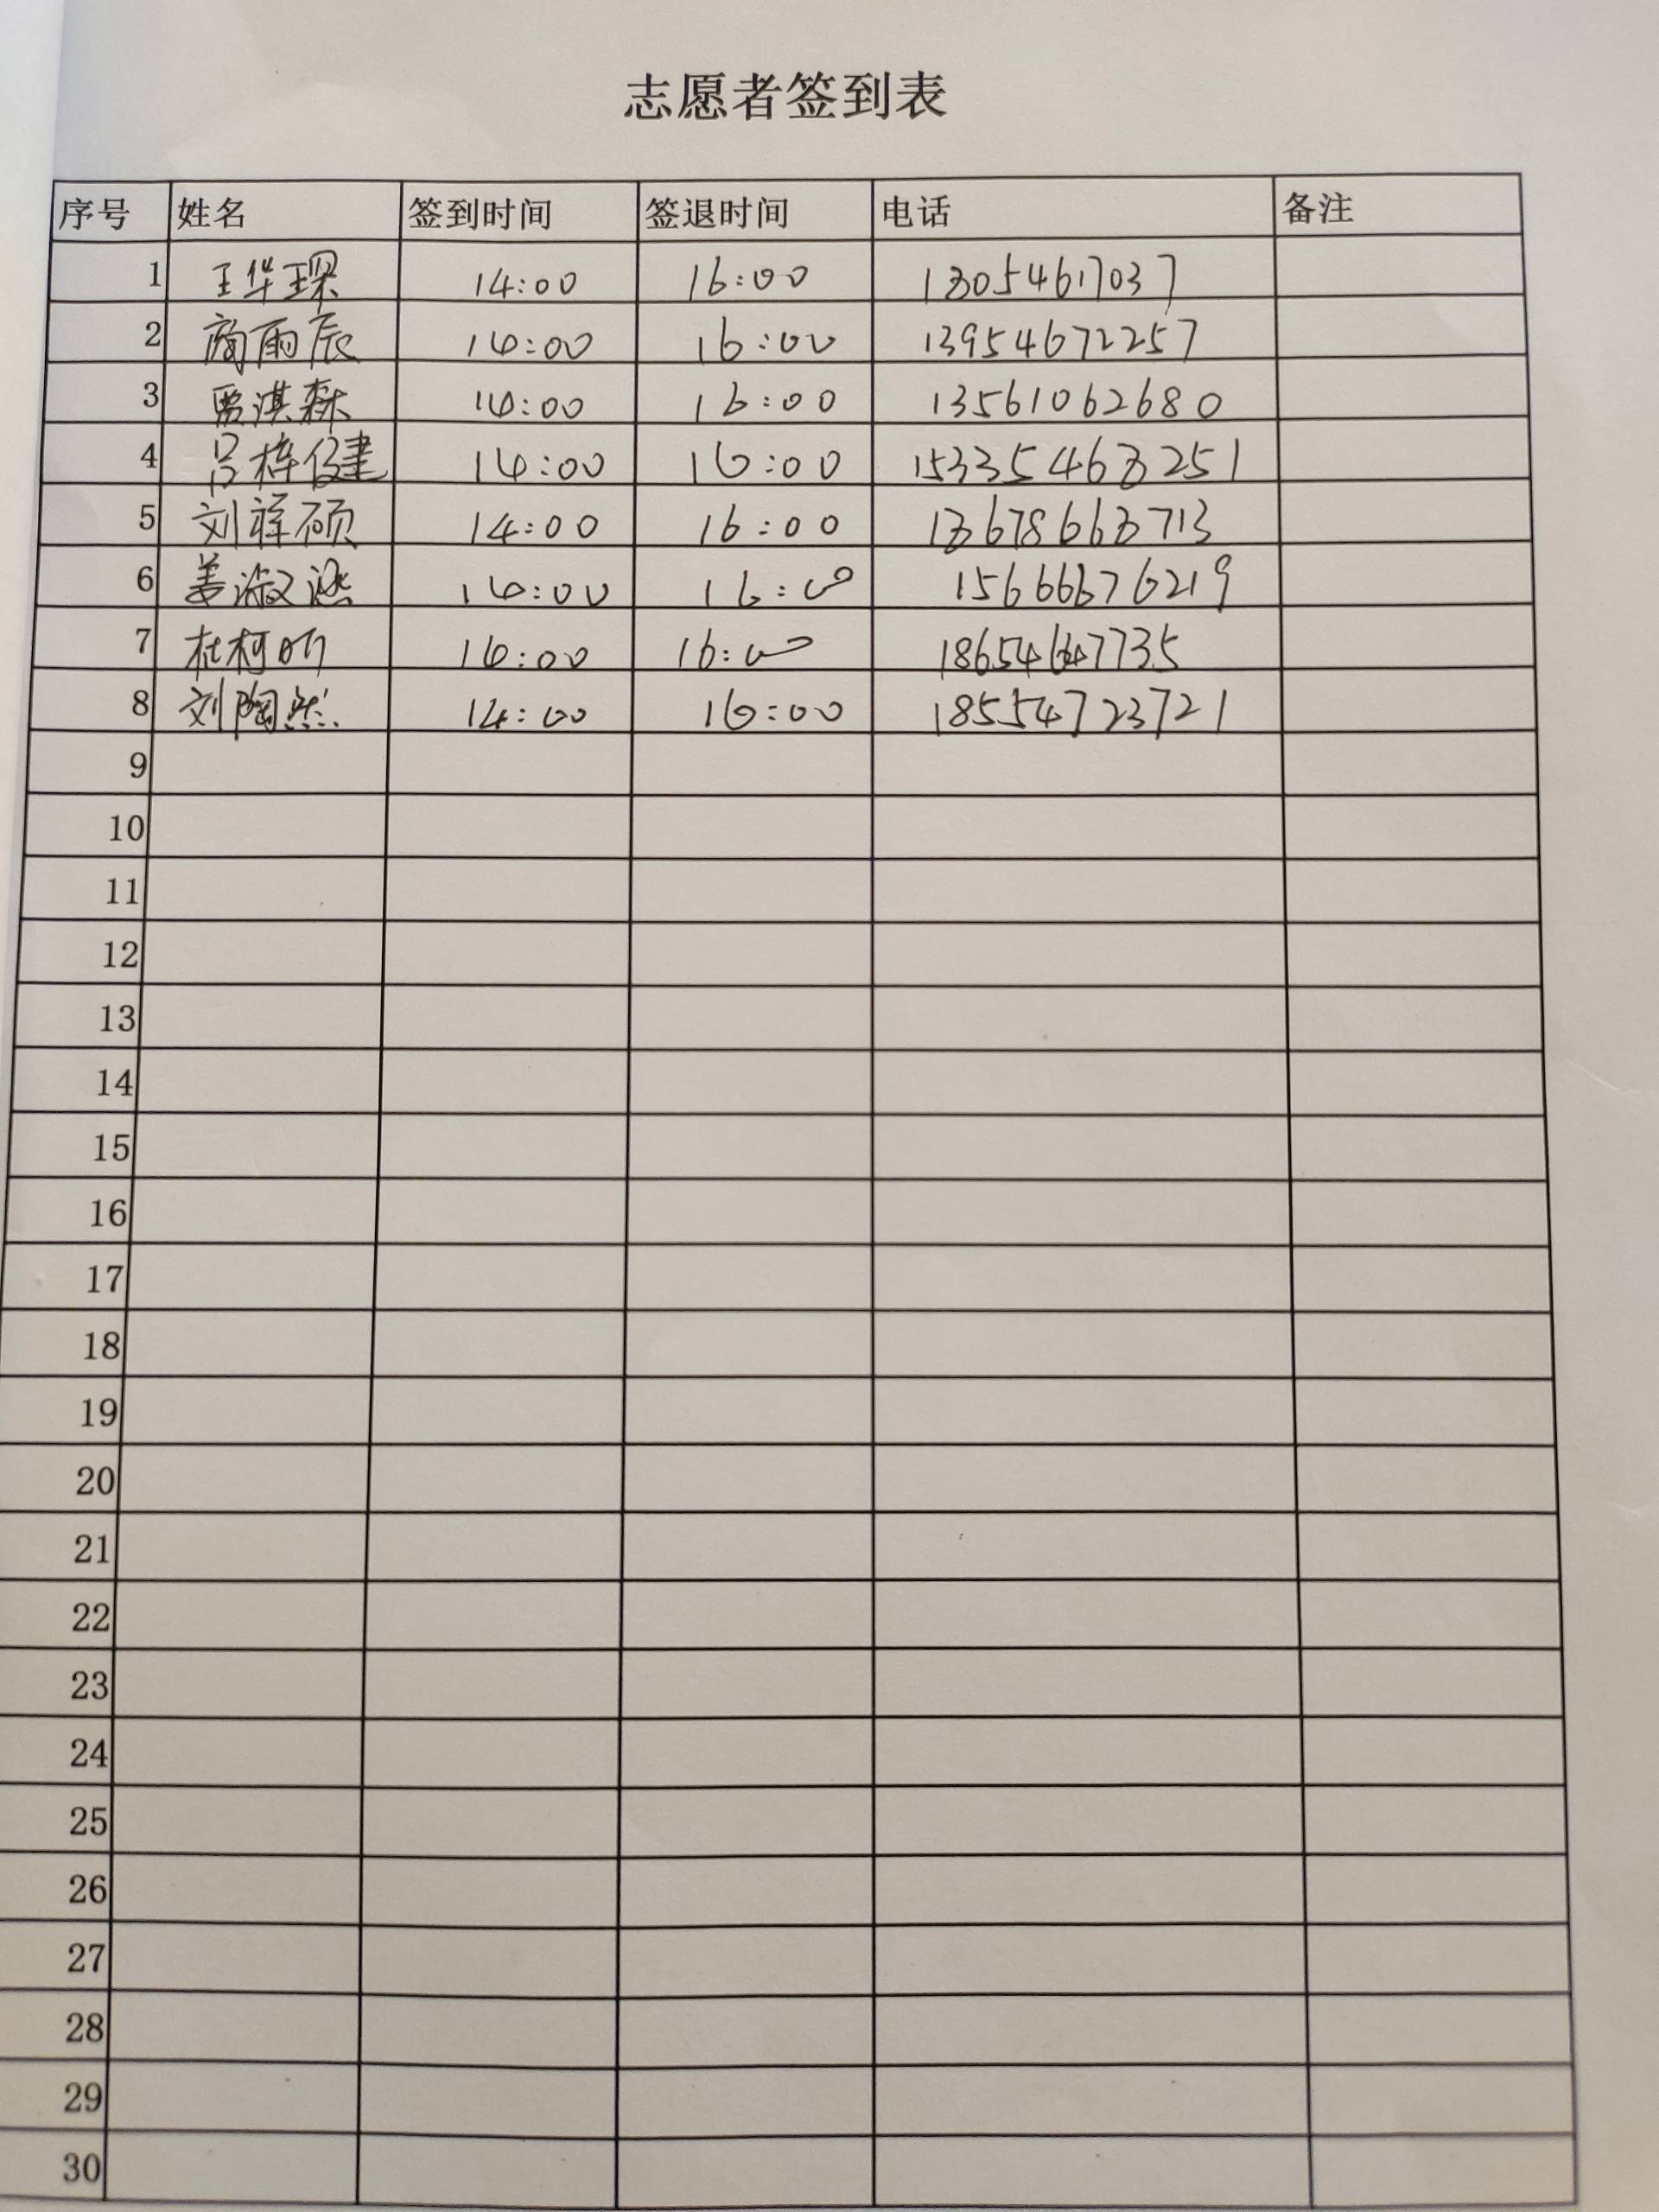 志愿者签到表
序号 姓名 签到时间 签退时间 电话 备注
1 王华琛 14:00 16:00 13054617037
2 商雨辰 14:00 16:00 13954672257
3 贾淇森 14:00 16:00 13561062680
4 吕梓健 14:00 16:00 15335463251
5 刘祥硕 14:00 16:00 13678663713
6 姜淑涵 14:00 16:00 15666676219
7 杜柯昕 14:00 16:00 18654647735
8 刘陶然 14:00 16:00 18554723721
9
10
11
12
13
14
15
16
17
18
19
20
21
22
23
24
25
26
27
28
29
30